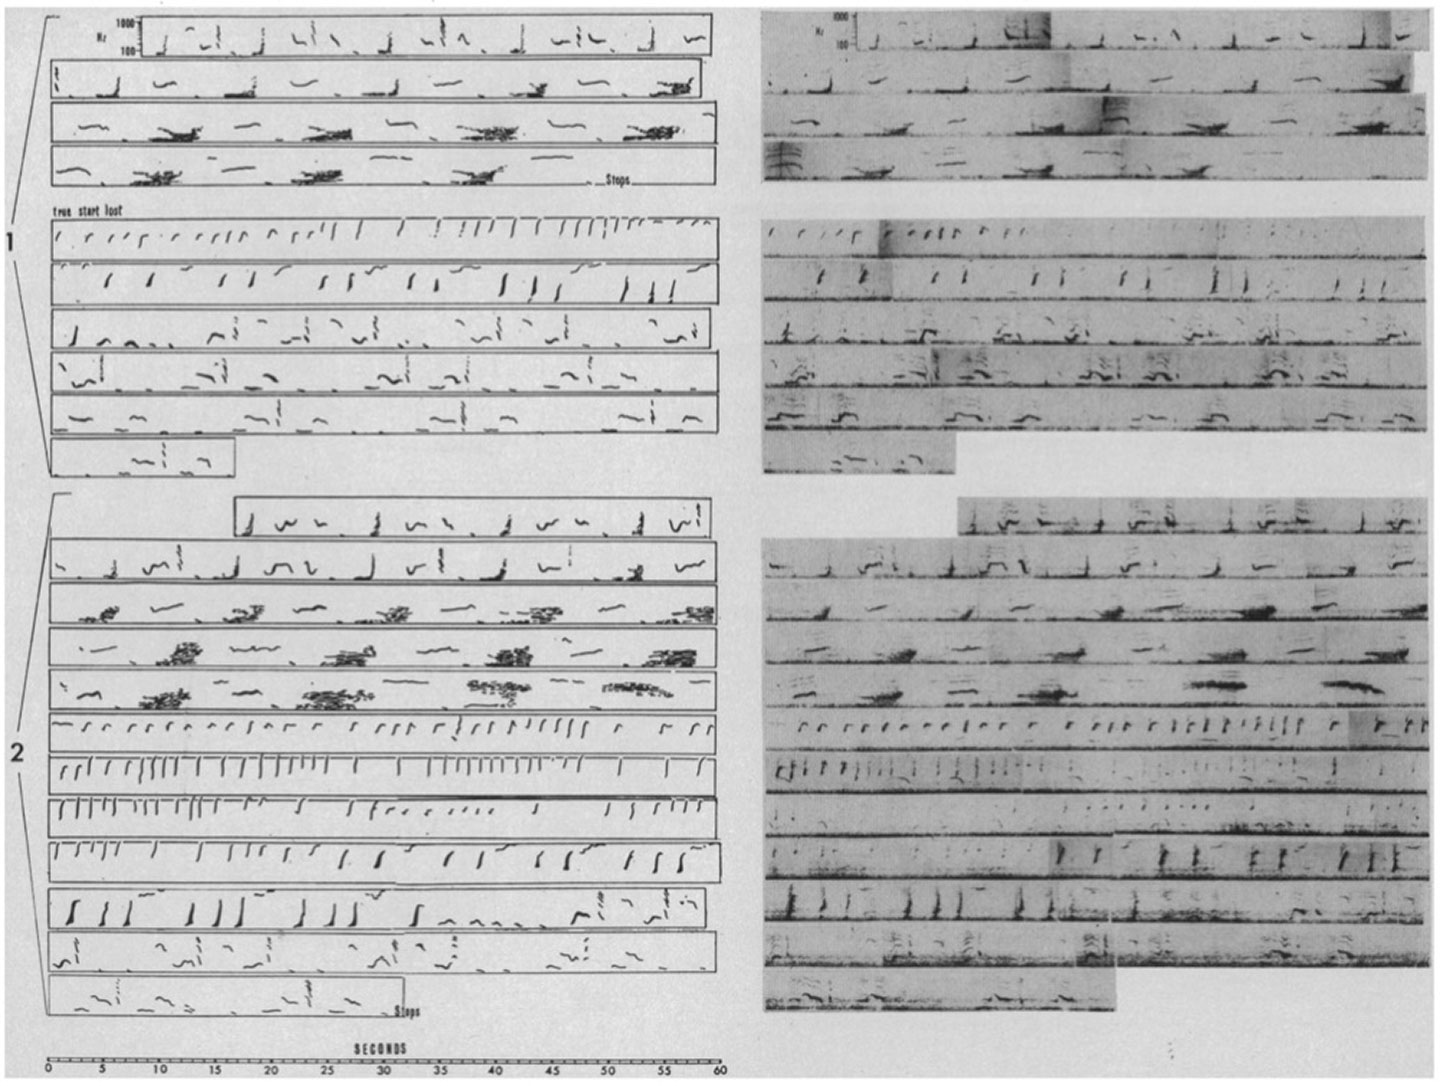 1000
Hz
100
1000
Hz
100
Stops
true start lost
1
2
Stops
SECONDS
0 5 10 15 20 25 30 35 40 45 50 55 60